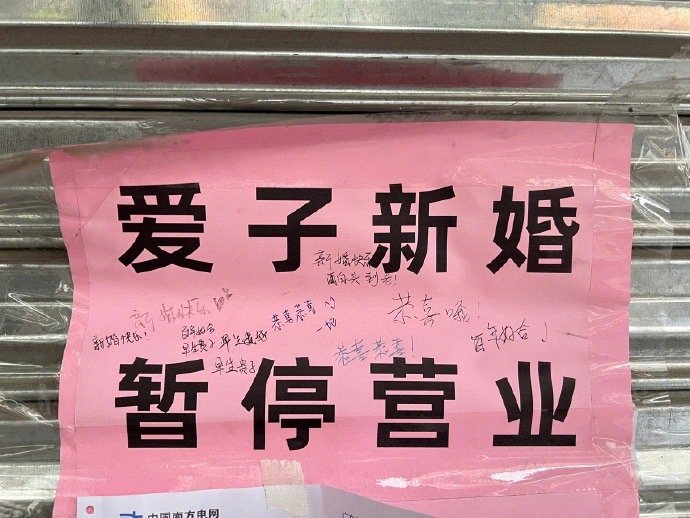 爱子新婚
新婚快乐
白头到老!
新婚快乐
恭喜恭喜
恭喜哦!
新婚快乐!
百年好合
早生贵子
早生贵子
恭喜恭喜!
百年好合!
暂停营业
中国南方电网